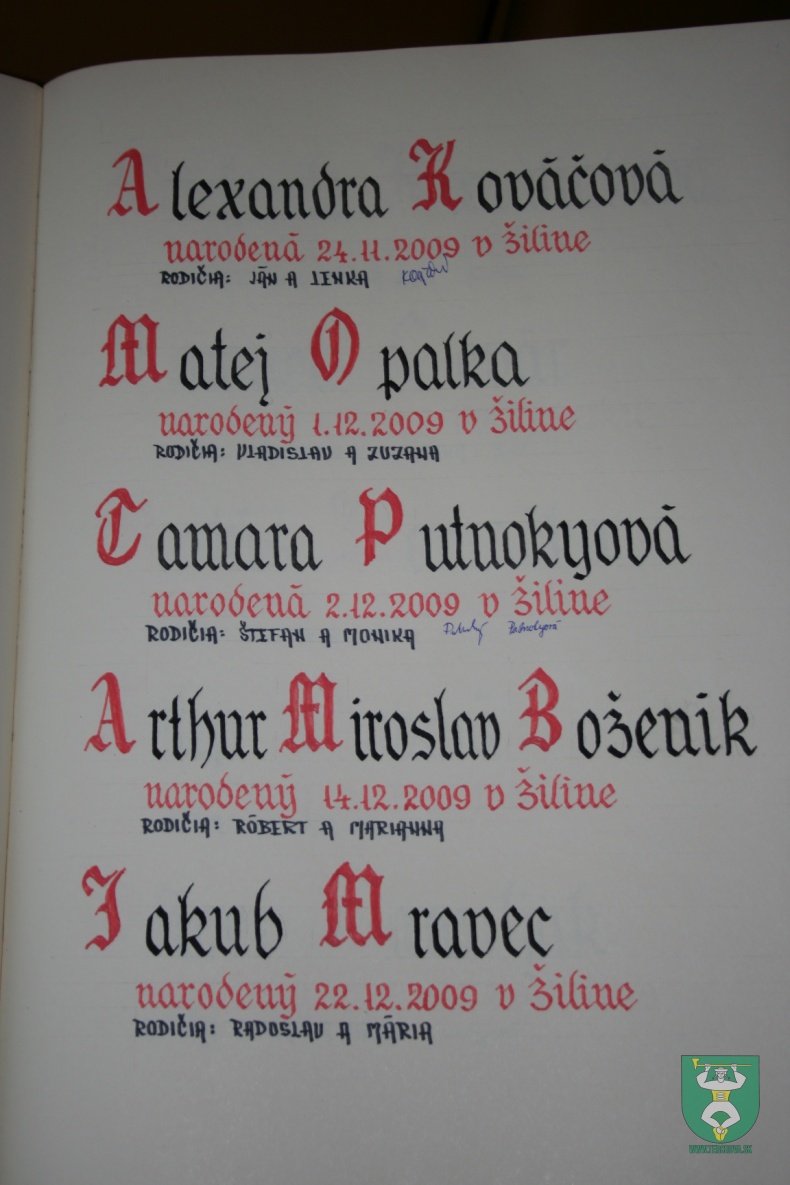 Alexandra Kováčová
narodená 24.11.2009 v Žiline
RODIČIA: JÁN A LENKA
Matej Opalka
narodený 1.12.2009 v Žiline
RODIČIA: VLADISLAV A ZUZANA
Tamara Putnokyová
narodená 2.12.2009 v Žiline
RODIČIA: ŠTEFAN A MONIKA
Arthur Miroslav Boženik
narodený 14.12.2009 v Žiline
RODIČIA: RÓBERT A MARIANNA
Jakub Mravec
narodený 22.12.2009 v Žiline
RODIČIA: RADOSLAV A MÁRIA
WWW.TERCHOVA.SK